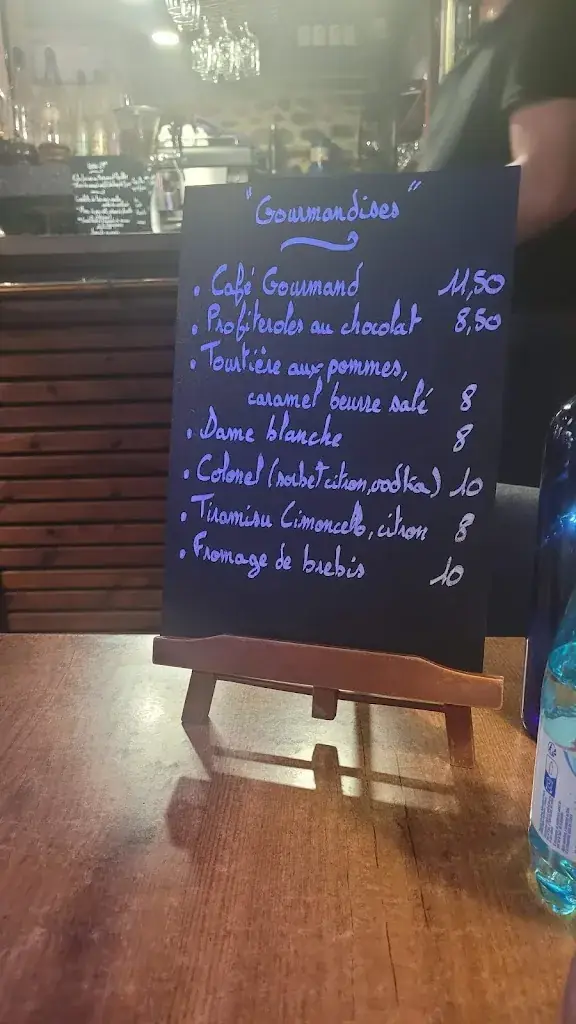 "Gourmandises"
. Café Gourmand 11,50
. Profiteroles au chocolat 8,50
. Tourtière aux pommes,
caramel beurre salé 8
. Dame blanche 8
. Colonel (sorbet citron, vodka) 10
. Tiramisu Limoncello, citron 8
. Fromage de brebis 10